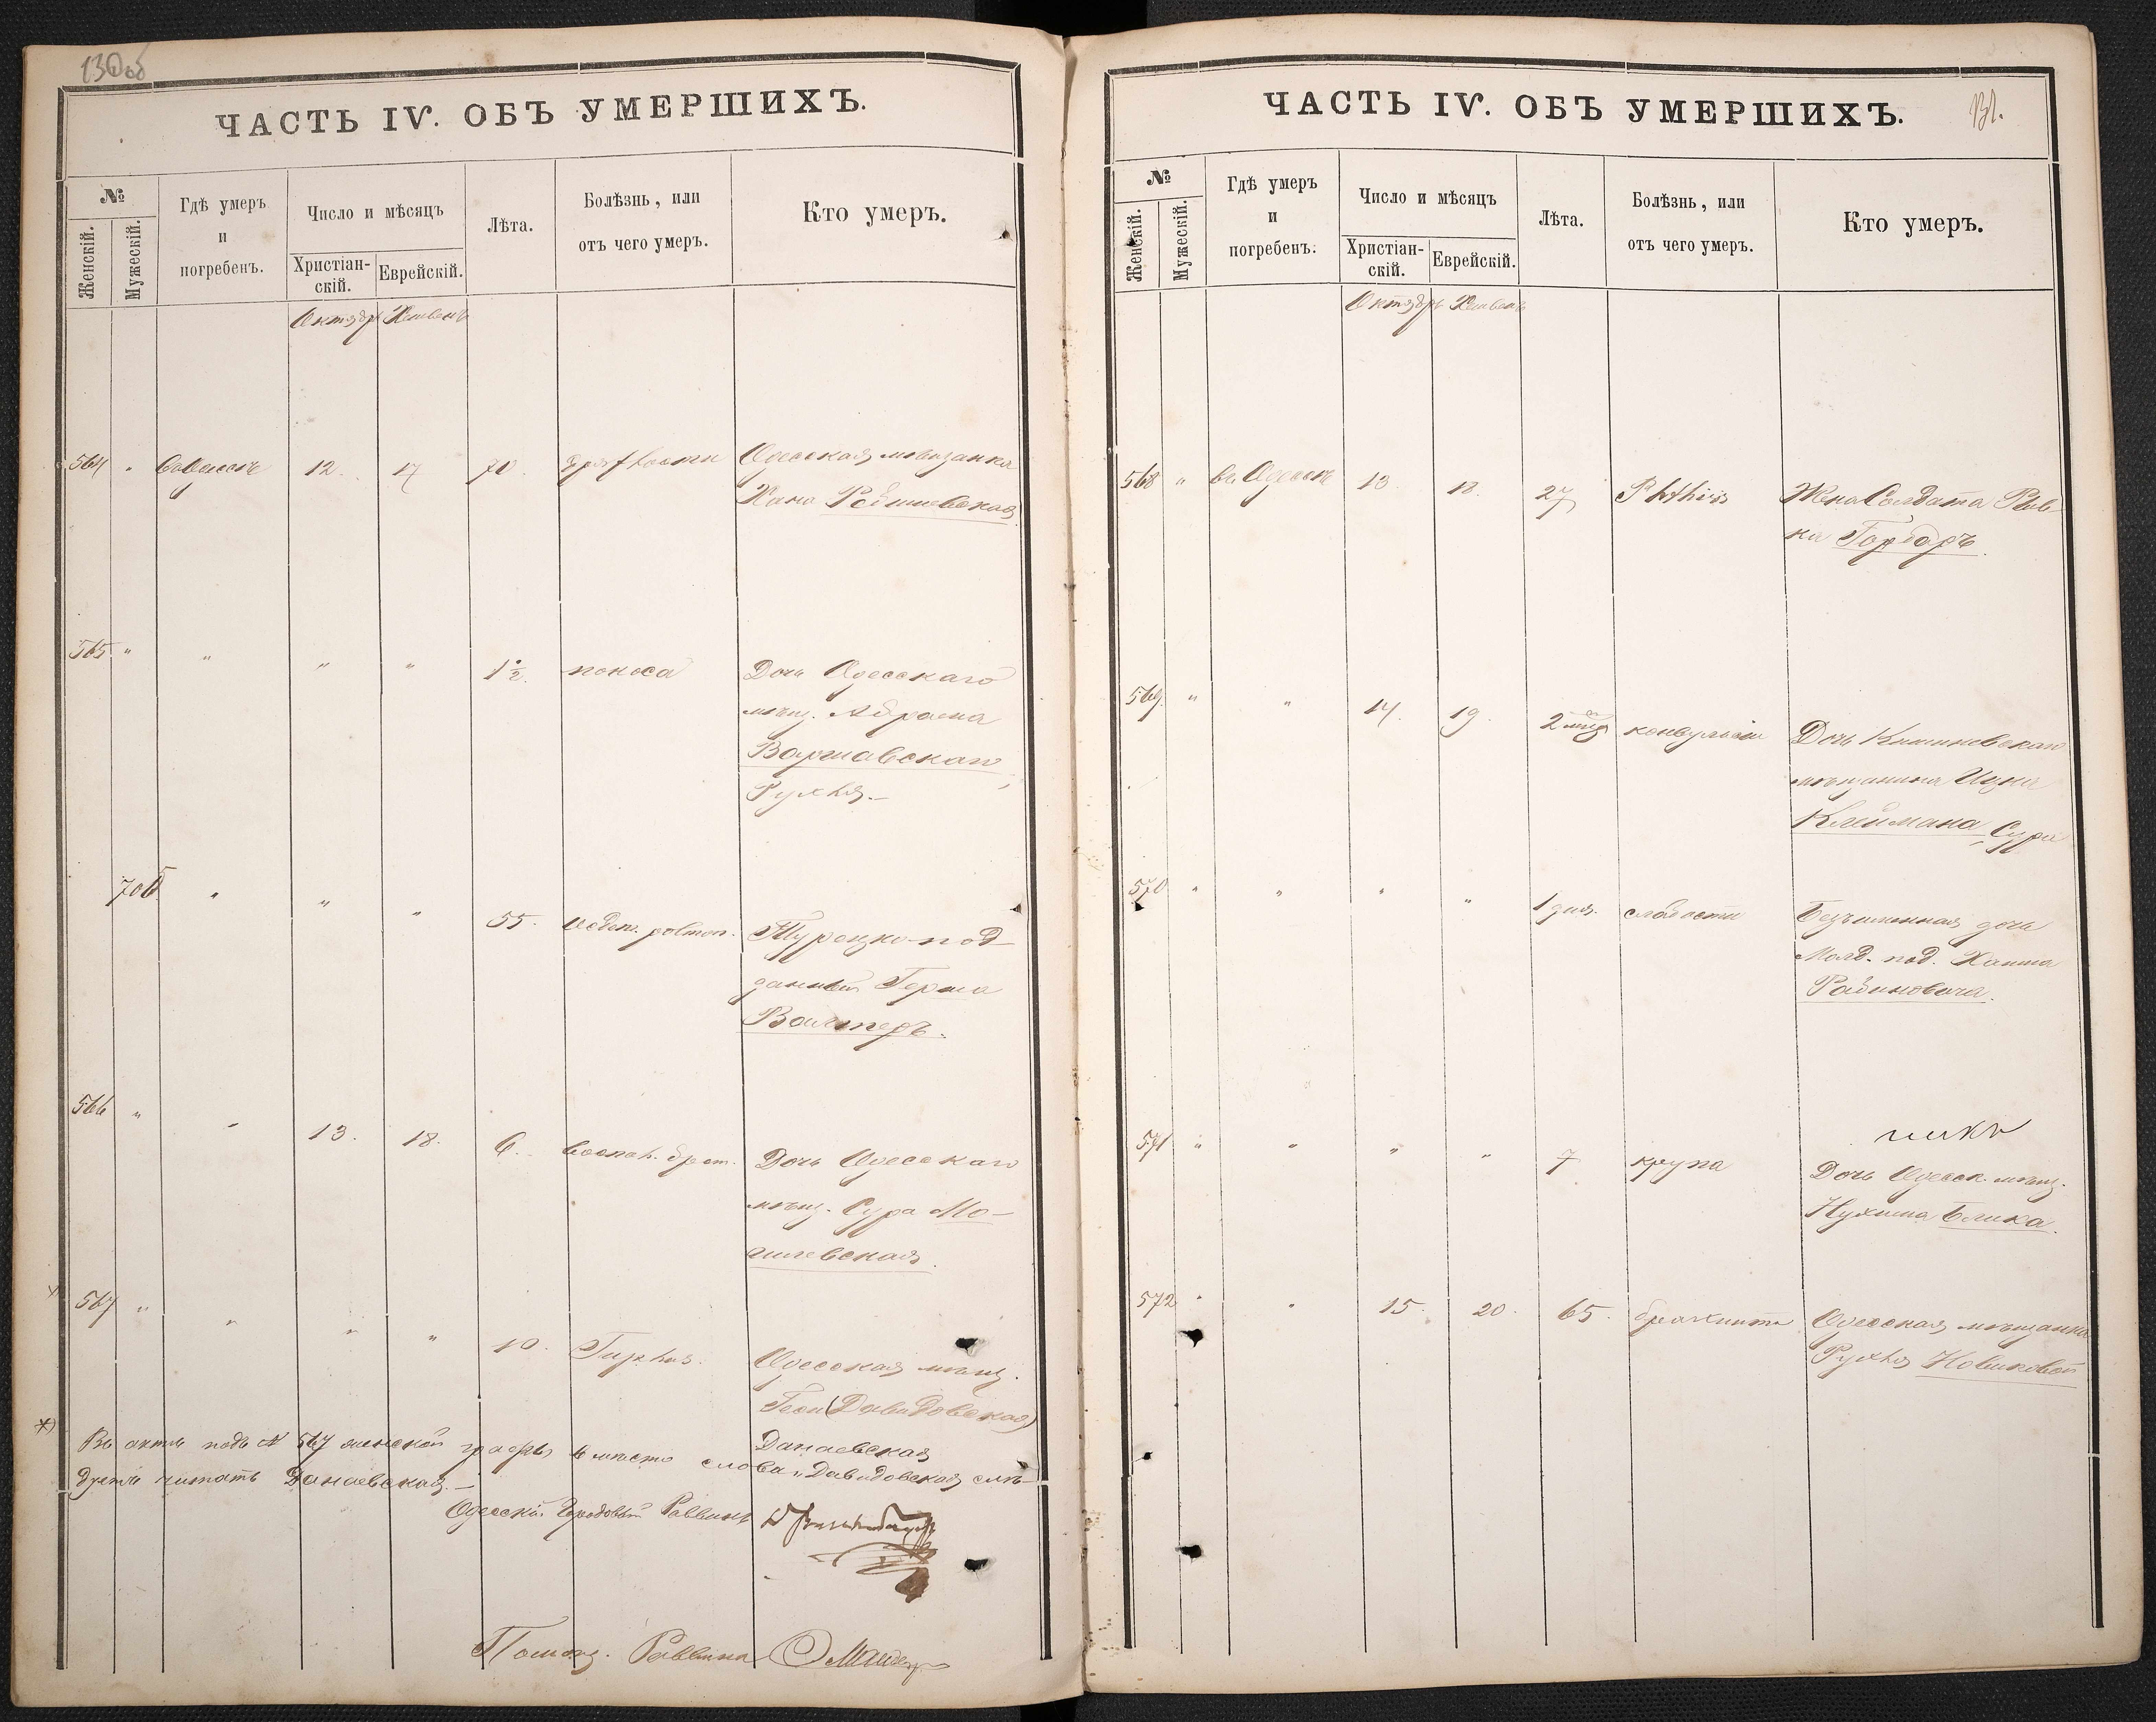 130об
ЧАСТЬ IV. ОБЪ УМЕРШИХЪ.
№
Женскій.
Мужескій.
Гдѣ умеръ
и
погребенъ.
Число и мѣсяцъ
Христіан-
скій.
Еврейскій.
Лѣта.
Болѣзнь, или
отъ чего умеръ.
Кто умеръ.
Октябрь Хешвенъ
564 " 12. 17 70. дряхлости Одесская мѣщанка
Хана
565. " " " " 1½. поноса Дочь Одесскаго
мѣщ. Абрама
Варшавскаго,
Рухля.–
706 " " " 55. Турецко-под-
данный Герша
566 " " 13. 18. 6. воспал. Дочь Одесскаго
мѣщ. Сура Мо-
гилевская.
567 " " " " 10. Одесская мѣщ.
(Давидовская)
Данаевская
*) Въ актѣ подъ № 567 женской графы вмѣсто слова „Давидовская слѣ-
дуетъ читать Данаевская.–
Одесскій Городовой Раввинъ
Помощ. Раввина
131.
ЧАСТЬ IV. ОБЪ УМЕРШИХЪ.
№
Женскій.
Мужескій.
Гдѣ умеръ
и
погребенъ.
Число и мѣсяцъ
Христіан-
скій.
Еврейскій.
Лѣта.
Болѣзнь, или
отъ чего умеръ.
Кто умеръ.
Октябрь Хешвенъ
568 " въ Одессѣ 13. 18. 27 Phthisis Жена Солдата Рив-
ка Горбаръ.
569. " " 14. 19. 2 конвульсіи Дочь Кишиневскаго
мѣщанина Ицка
Клеймана, Сура
570 " " " " 1 дня. слабости Безъименная дочь
Молд. под. Хаима
Рабиновича.
571 " " " " 7 крупа Дочь Одесск. мѣщ.
Нухима Блика.
572 " " 15. 20. 65. Одесская мѣщанка
Рухля Новиковой